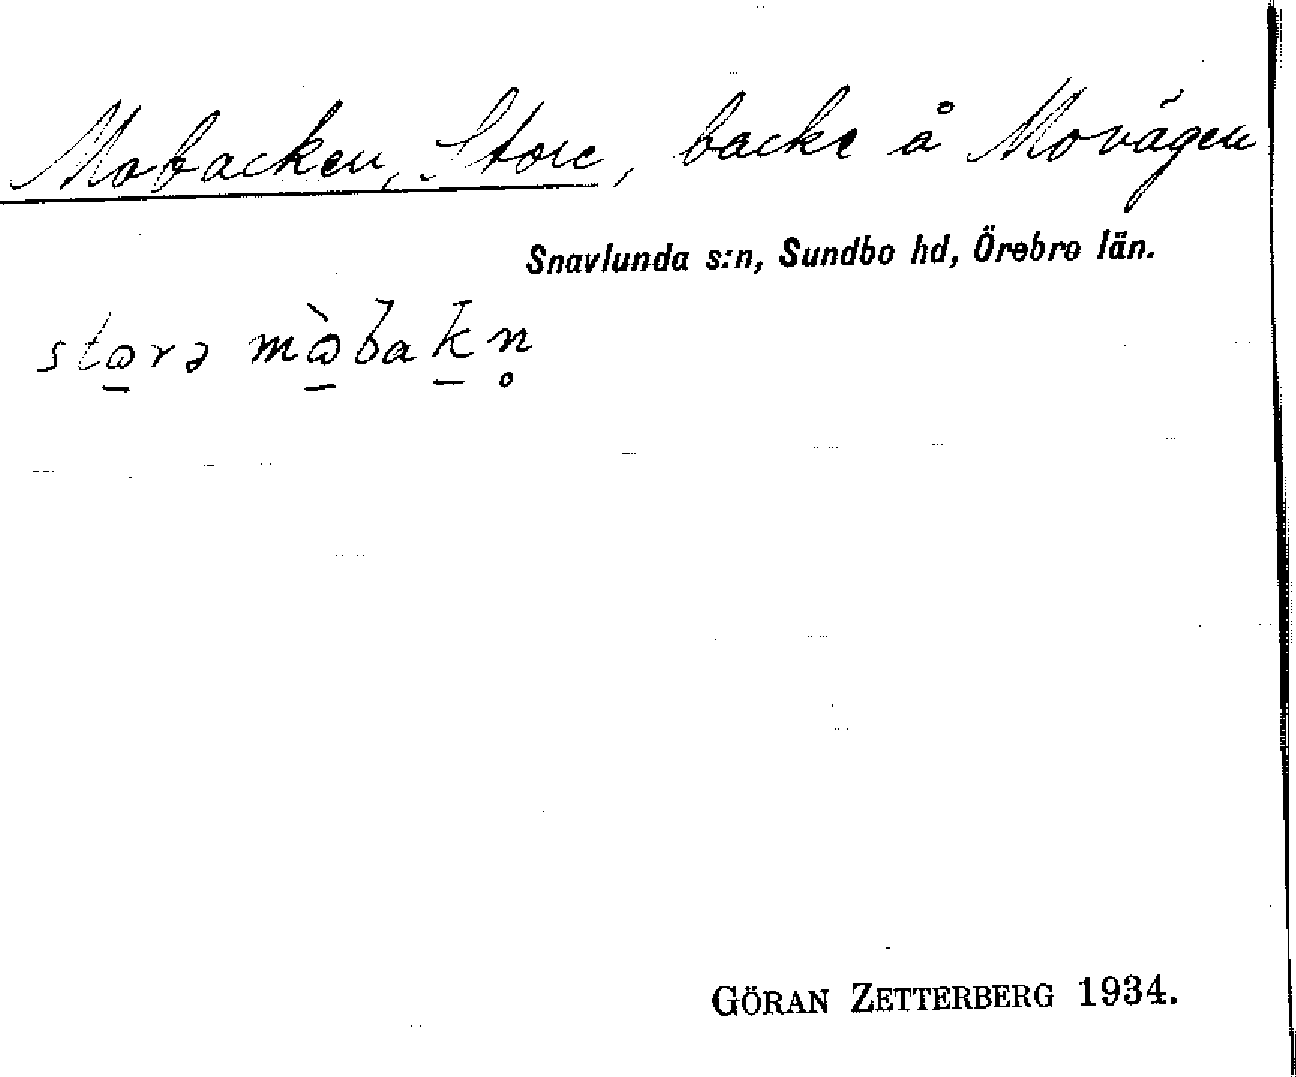 Mobacken, Store, backe å Movägen
Snavlunda s:n, Sundbo hd, Örebro län.
stɷ̱rə mɷ̱̀baḵn̥
GÖRAN ZETTERBERG 1934.